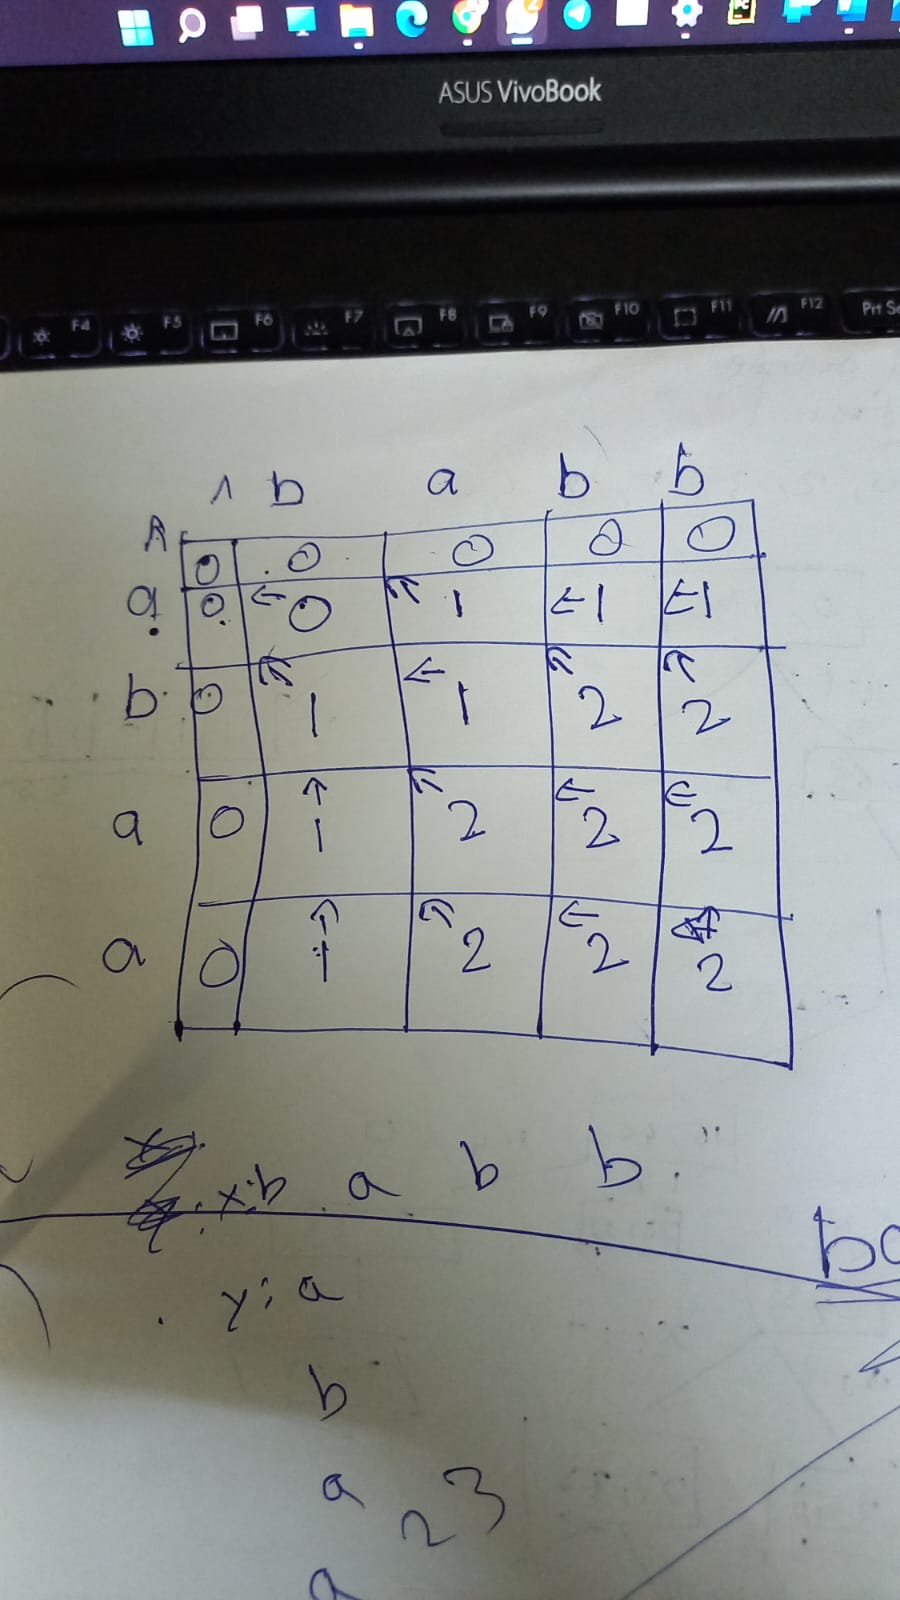 ASUS VivoBook
F4 F5 F6 F7 F8 F9 F10 F11 F12 Prt Sc
Λ b a b b
Λ 0 0 0 0 0
a 0 ← 0 ↖ 1 ← 1 ← 1
b 0 ↖ 1 ← 1 ↖ 2 ↖ 2
a 0 ↑ 1 ↖ 2 ← 2 ← 2
a 0 ↑ 1 ↖ 2 ← 2 2
x: b a b b
y: a
b
a
a
2 3